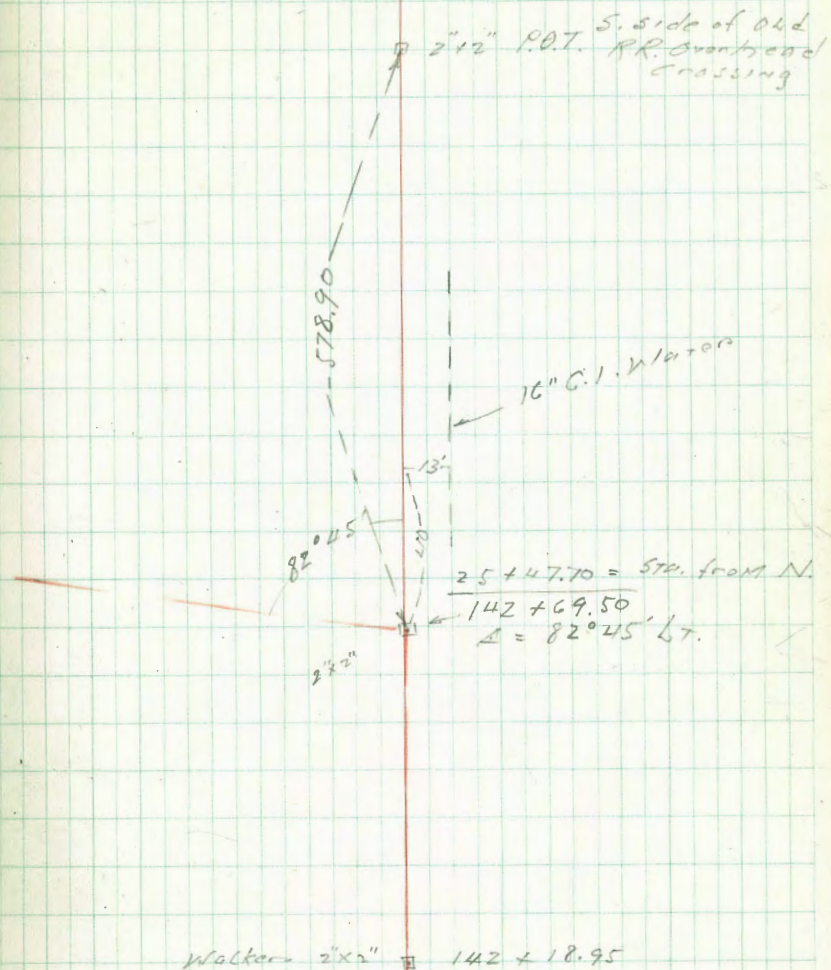 2"x2" P.O.T. S. side of Old
RR. Overhead
Crossing
578.90
16" C.I. Water
13'
20
82°45'
25+47.70 = Sta. from N.
142+69.50
∠ = 82°45' Lt.
2"x2"
Walker 2"x2" 142+18.95